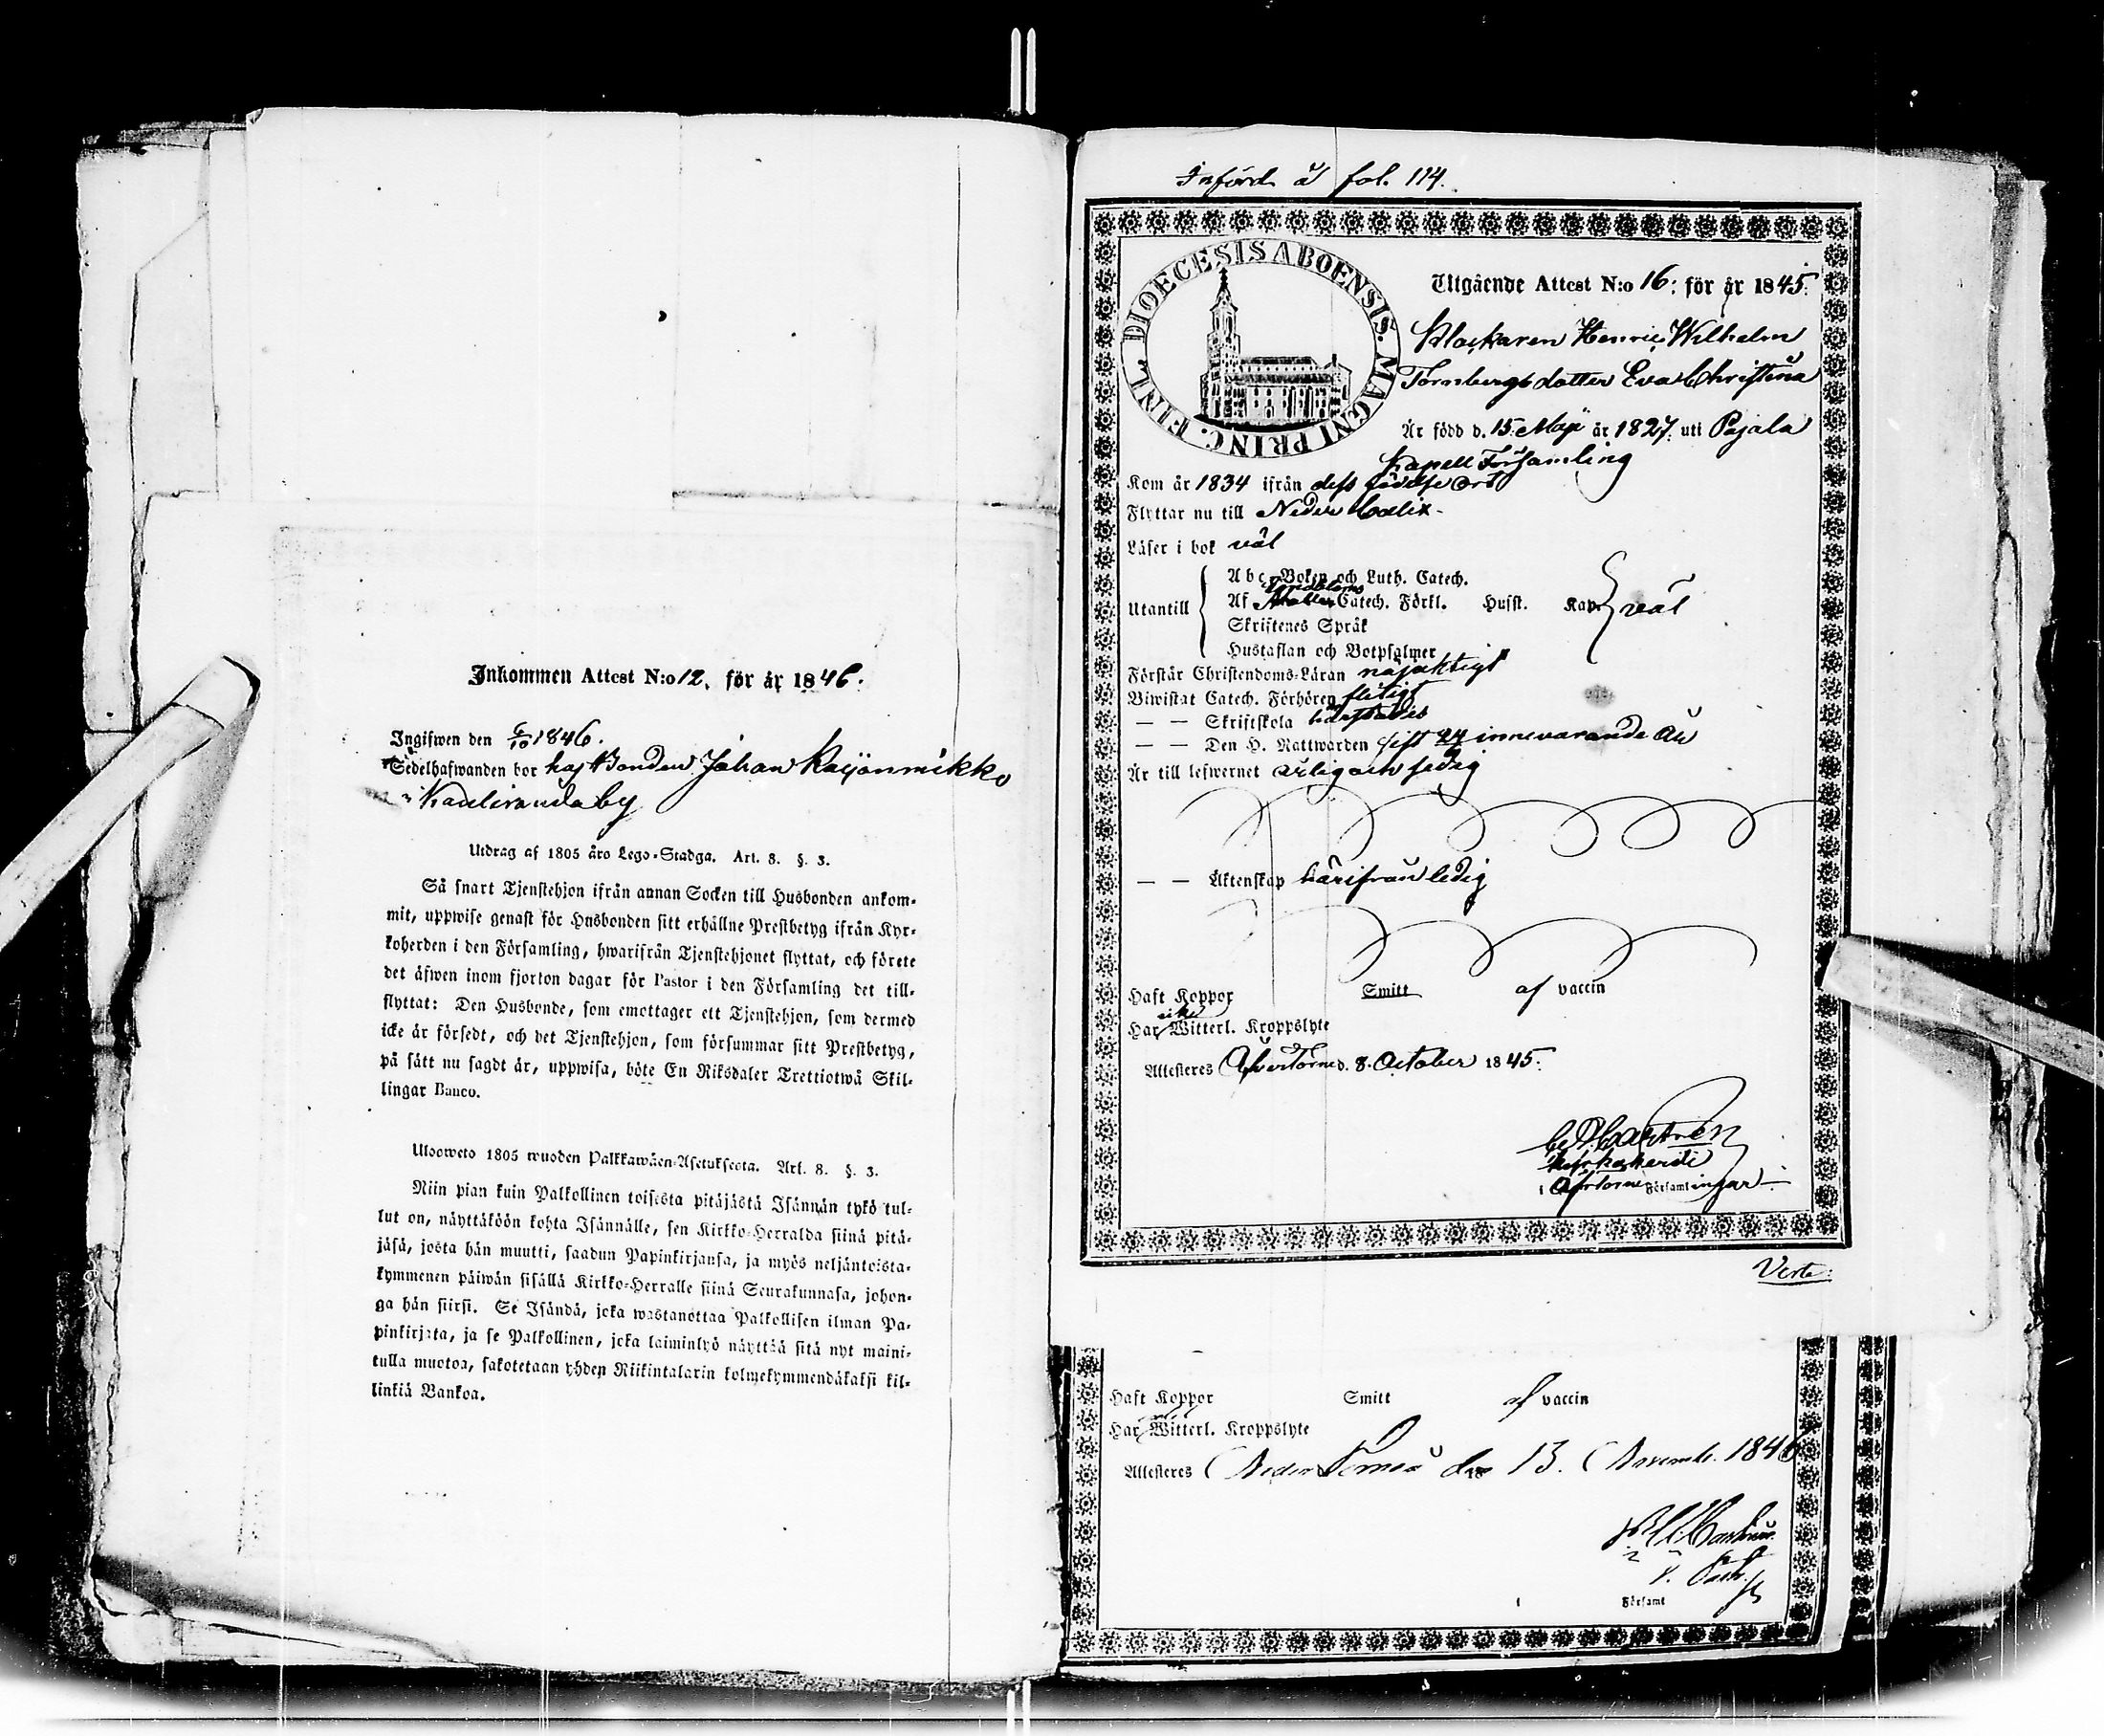 Inkommen Attest N:o 12. för år 1846.
Ingifwen den 6/10 1846.
Sedelhafwanden bor hos Bonden Johan
by
Utdrag af 1805 års Lego-Stadga. Art. 8. §. 3.
Så snart Tjenstehjon ifrån annan Socken till Husbonden ankom-
mit, uppwise genast för Husbonden sitt erhållne Prestbetyg ifrån Kyr-
koherden i den Församling, hwarifrån Tjenstehjonet flyttat, och förete
det äfwen inom fjorton dagar för Pastor i den Församling det till-
flyttat: Den Husbonde, som emottager ett Tjenstehjon, som dermed
icke är försedt, och det Tjenstehjon, som försummar sitt Prestbetyg,
på sätt nu sagdt är, uppwisa, böte En Riksdaler Trettiotwå Skil-
lingar Banco.
Ulosweto 1805 wuoden Palkkawäen-Asetuksesta. Art. 8. §. 3.
Niin pian kuin Palkollinen toisesta pitäjästä Isännän tykö tul-
lut on, näyttäköön kohta Isännälle, sen Kirkko-Herralda siinä pitä-
jäsä, josta hän muutti, saadun Papinkirjansa, ja myös neljäntoista-
kymmenen päiwän sisällä Kirkko-Herralle siinä Seurakunnasa, johon-
ga hän siirsi. Se Isändä, joka wastanottaa Palkollisen ilman Pa-
pinkirjata, ja se Palkollinen, joka laiminlyö näyttää sitä nyt maini-
tulla muotoa, sakotetaan yhden Riikintalarin kolmekymmendäkaksi kil-
linkiä Bankoa.
Införd å fol. 114.
FINL. DIOECESIS ABOENSIS. MAGNI PRINC.
Utgående Attest N:o 16: för år 1845.
Klockaren Henric Wilhelm
Törnbergs dotter Eva Christina
Är född d. 15 Maji år 1827. uti Pajala
Kapell Församling
Kom år 1834 ifrån dess födelse ort
Flyttar nu till Neder Calix-
Läser i bok väl
Utantill
Abc-Boken och Luth. Catech.
Af Catech. Förkl. Husst. Kap. väl
Skriftenes Språk
Hustaflan och Botpsalmer
Förstår Christendoms-Läran nöjaktigt
Biwistat Catech. Förhören flitigt
— — Skriftskola härstädes
— — Den H. Nattwarden sist innevarande år
Är till lefwernet ärlig och sedig
— — Äktenskap härifrån ledig
Haft Koppor Smitt af vaccin
icke
Har Witterl. Kroppslyte
Attesteres Öfvertorneå d. 8. October 1845.
Castrén
Kyrkoherde
i Öfvertorneå Församlingar
Verte:
Haft Koppor Smitt af vaccin
Har Witterl. Kroppslyte
Attesteres Neder Torneå den 13. Novemb. 1846
i
Församl